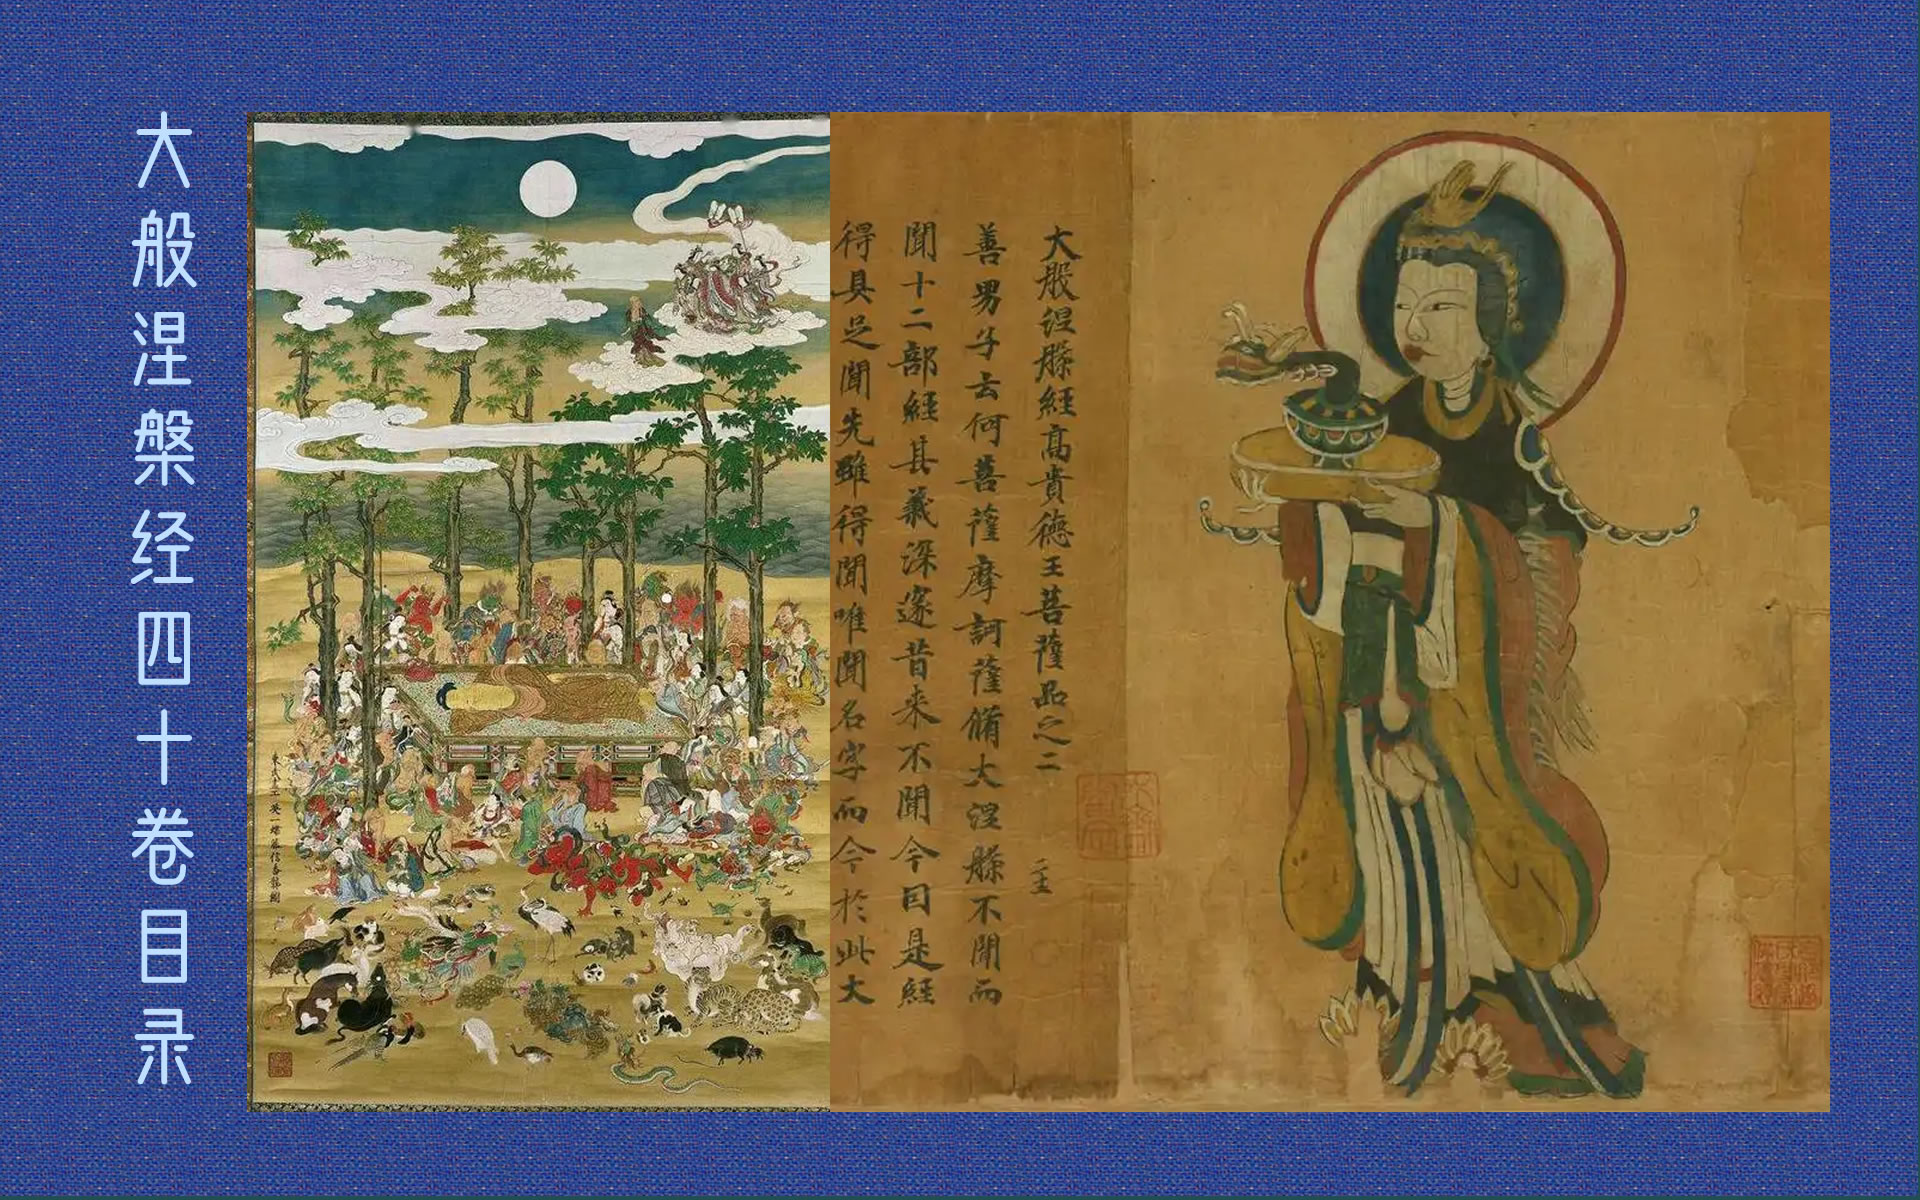 大般涅槃经四十卷目录
大般涅槃經高貴德王菩薩品之二 二十三
善男子云何菩薩摩訶薩脩大涅槃不聞而
聞十二部經其義深邃昔来不聞今因是經
得具足聞先雖得聞唯聞名字而今於此大